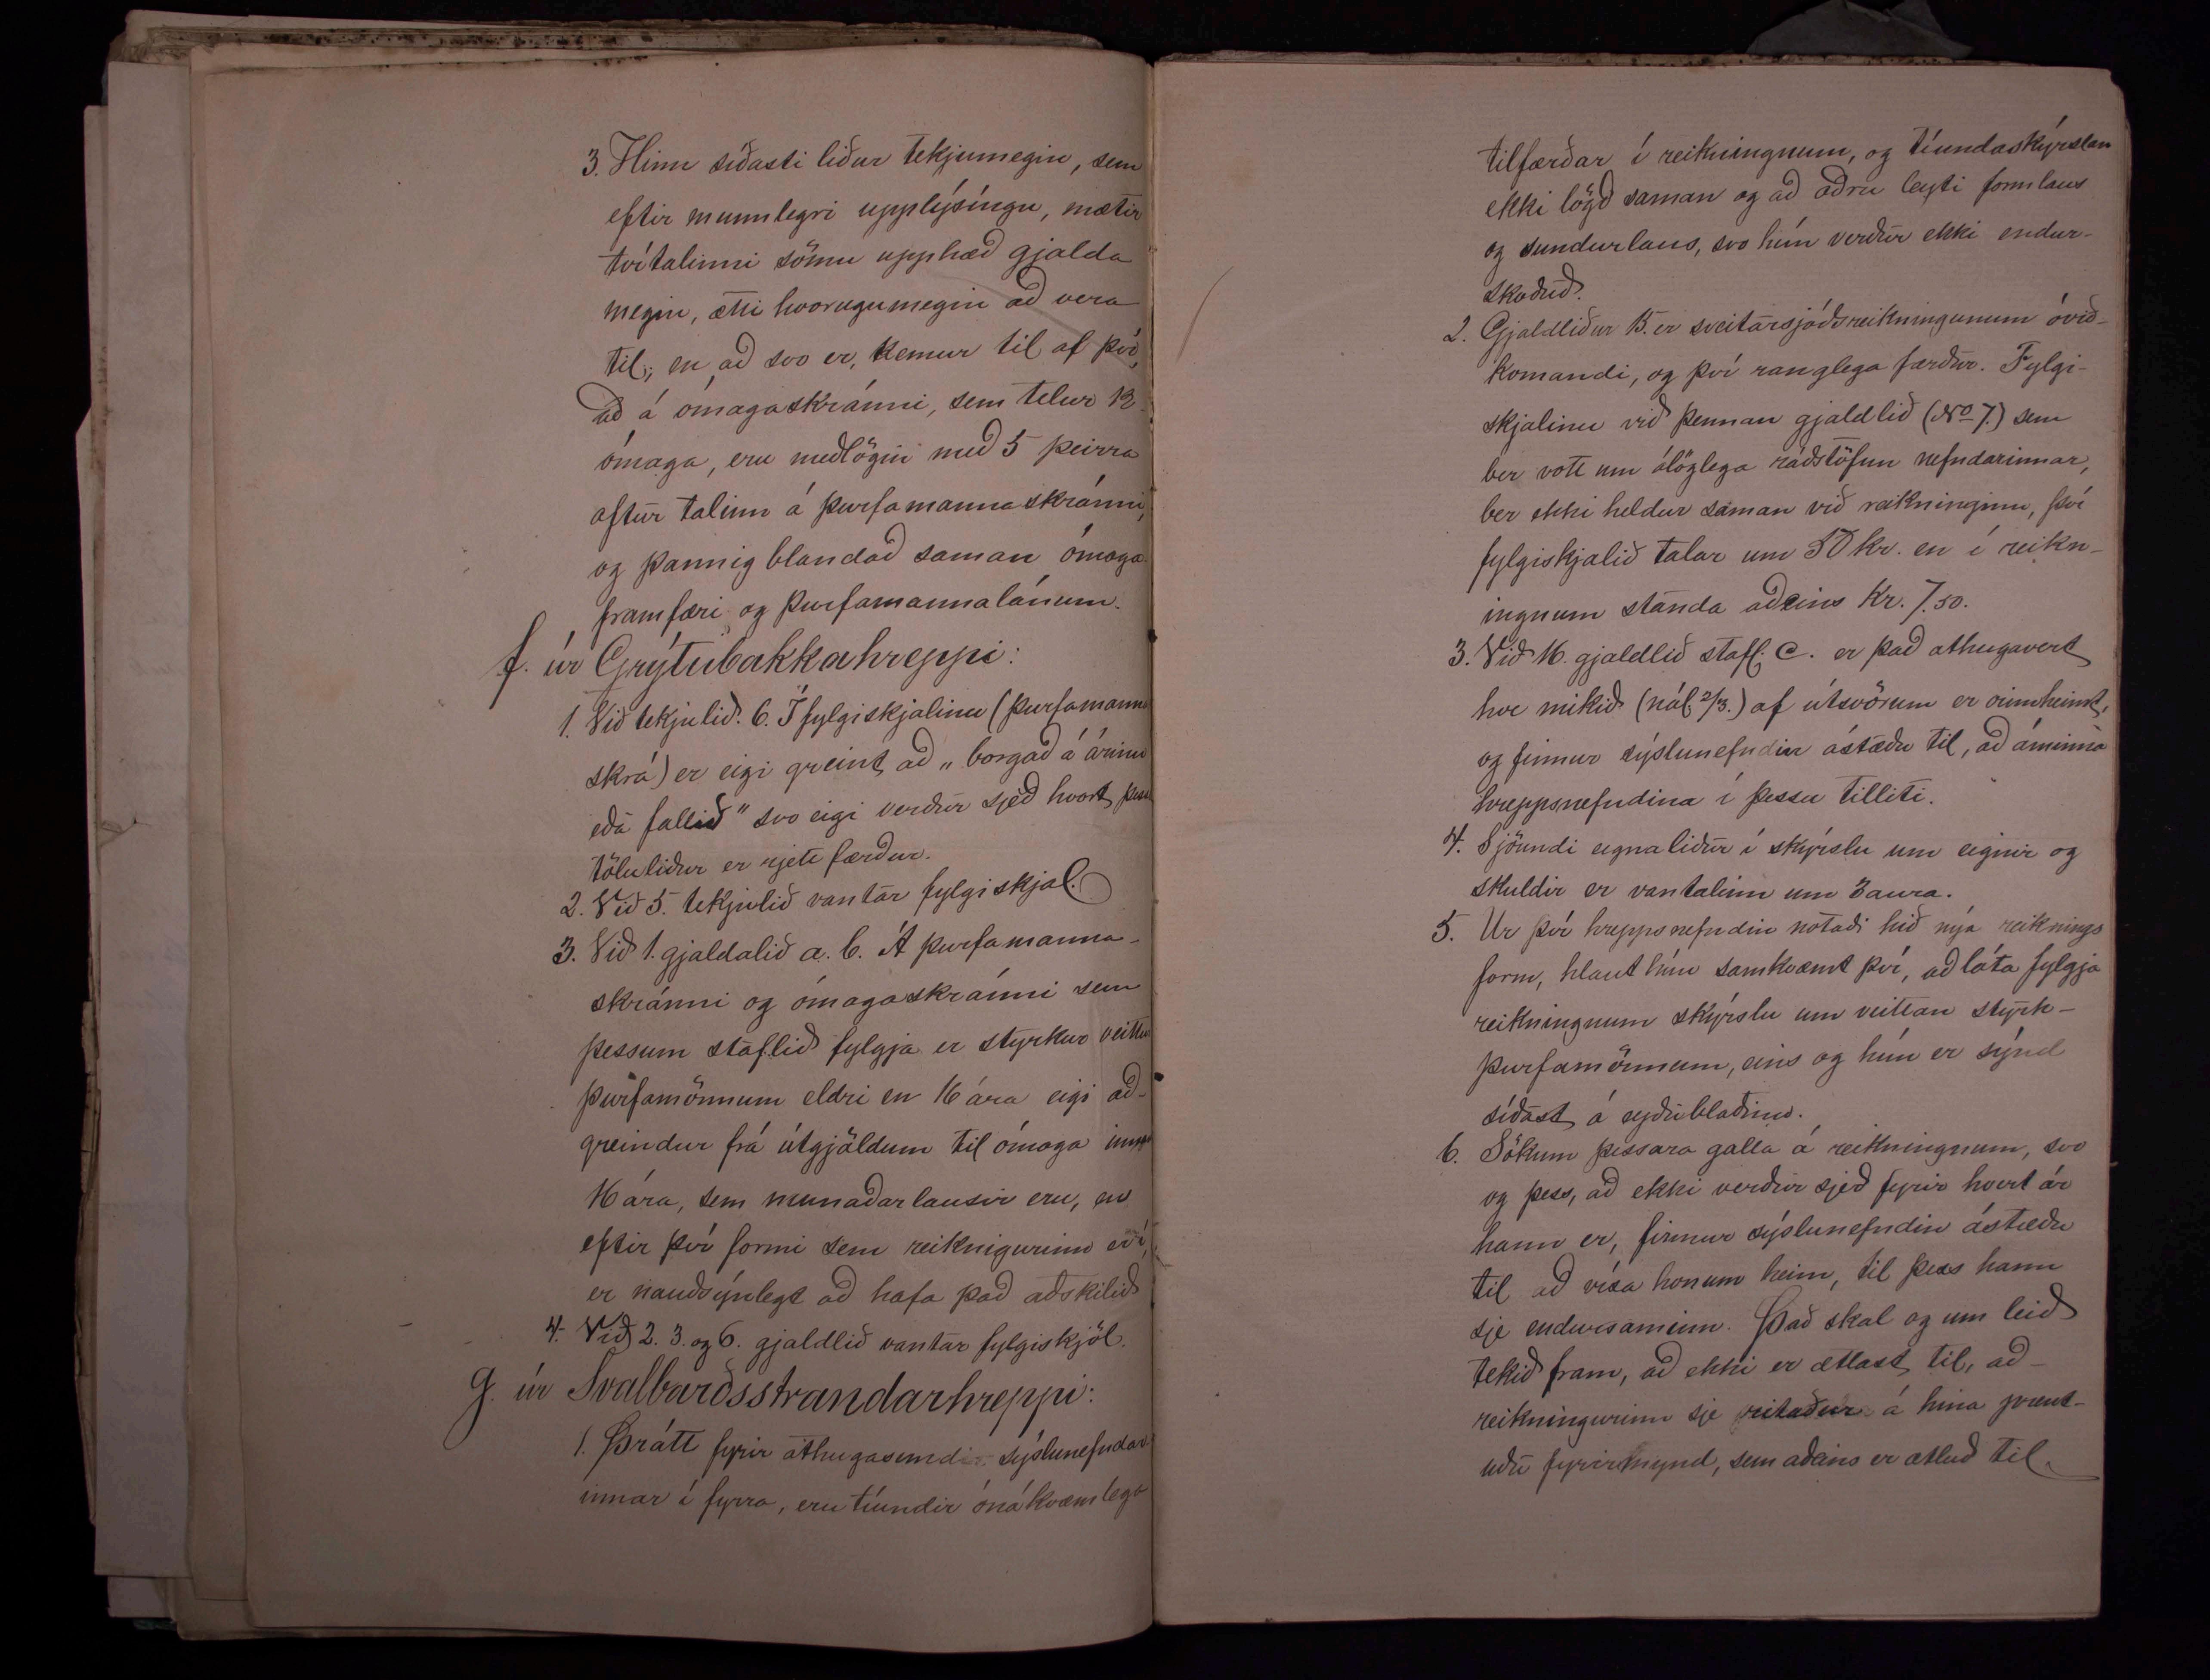 3. Hinn síðasti liður tekjumegin, sem
eftir munnlegri upplýsíngu, mætir
tvítalinni sömu upphæð gjalda
megin, ætti hvorugumegin að vera
til; en að svo er, kemur til af því,
að á ómagaskránni, sem telur 12
ómaga, eru meðlögin með 5 þeirra
aftur talinn á þurfamannaskránni,
og þannig blandað saman ómaga
framfæri og þurfamannalánum.
f. úr Grýtubakkahreppi:
1. Við tekjulið. 6. Í fylgiskjalinu (þurfamanna
skrá) er eigi greint að „borgað á árinu
eða fallið" svo eigi verður sjeð hvort þessi
töluliður er rjett færður.
2. Við 5. tekjulið vantar fylgiskjal.
3. Við 1. gjaldalið a. b. Á þurfamanna-
skránni og ómagaskránni sem
þessum staflið fylgja er styrkur veittur
þurfamönnum eldri en 16 ára eigi að-
greindur frá útgjöldum til ómaga innan
16 ára, sem munaðarlausir eru, en
eftir því formi sem reiknigurinn er í,
er nauðsýnlegt að hafa það aðskilið
4. Við 2. 3. og 6. gjaldlið vantar fylgiskjöl.
g. úr Svalbarðsstrandarhreppi:
1. Þrátt fyrir athugasemdir sýslunefndar
innar í fyrra, eru tíundir ónákvæmlega
tilfærðar í reikningnum, og tíundaskýrslan
ekki lögð saman og að öðru leyti formlaus
og sundurlaus, svo hún verður ekki endur-
skoðuð.
2. Gjaldliður 15. er sveitarsjóðsreikningunum óvið-
komandi, og því ranglega færður. Fylgi-
skjalinu við þennan gjaldlið (No 7.) sem
ber vott um ólöglega ráðstöfun nefndarinnar,
ber ekki heldur saman við reikninginn, því
fylgiskjalið talar um 50 kr. en í reikn-
ingnum standa aðeins kr. 7.50.
3. Við 16. gjaldlið stafl. c. er það athugavert
hve mikið (nál. 2/3.) af útsvörum er óinnheimt,
og finnur sýslunefndin ástæðu til, að áminna
hreppsnefndina í þessu tilliti.
4. Sjöundi eignaliður í skýrslu um eignir og
skuldir er vantalinn um 3 aura.
5. Úr því hreppsnefndin notaði hið nýa reiknings
form, hlaut hún samkvæmt því, að láta fylgja
reikningnum skýrslu um veittan styrk-
þurfamönnum, eins og hún er sýnd
síðast á eyðublaðinu.
6. Sökum þessara galla á reikningnum, svo
og þess, að ekki verður sjeð fyrir hvert ár
hann er, finnur sýslunefndin ástæðu
til að vísa honum heim, til þess hann
sje endursaminn. Það skal og um leið
tekið fram, að ekki er ætlast til, að-
reikningurinn sje ritaður á hina prent-
uðu fyrirmynd, sem aðeins er ætluð til